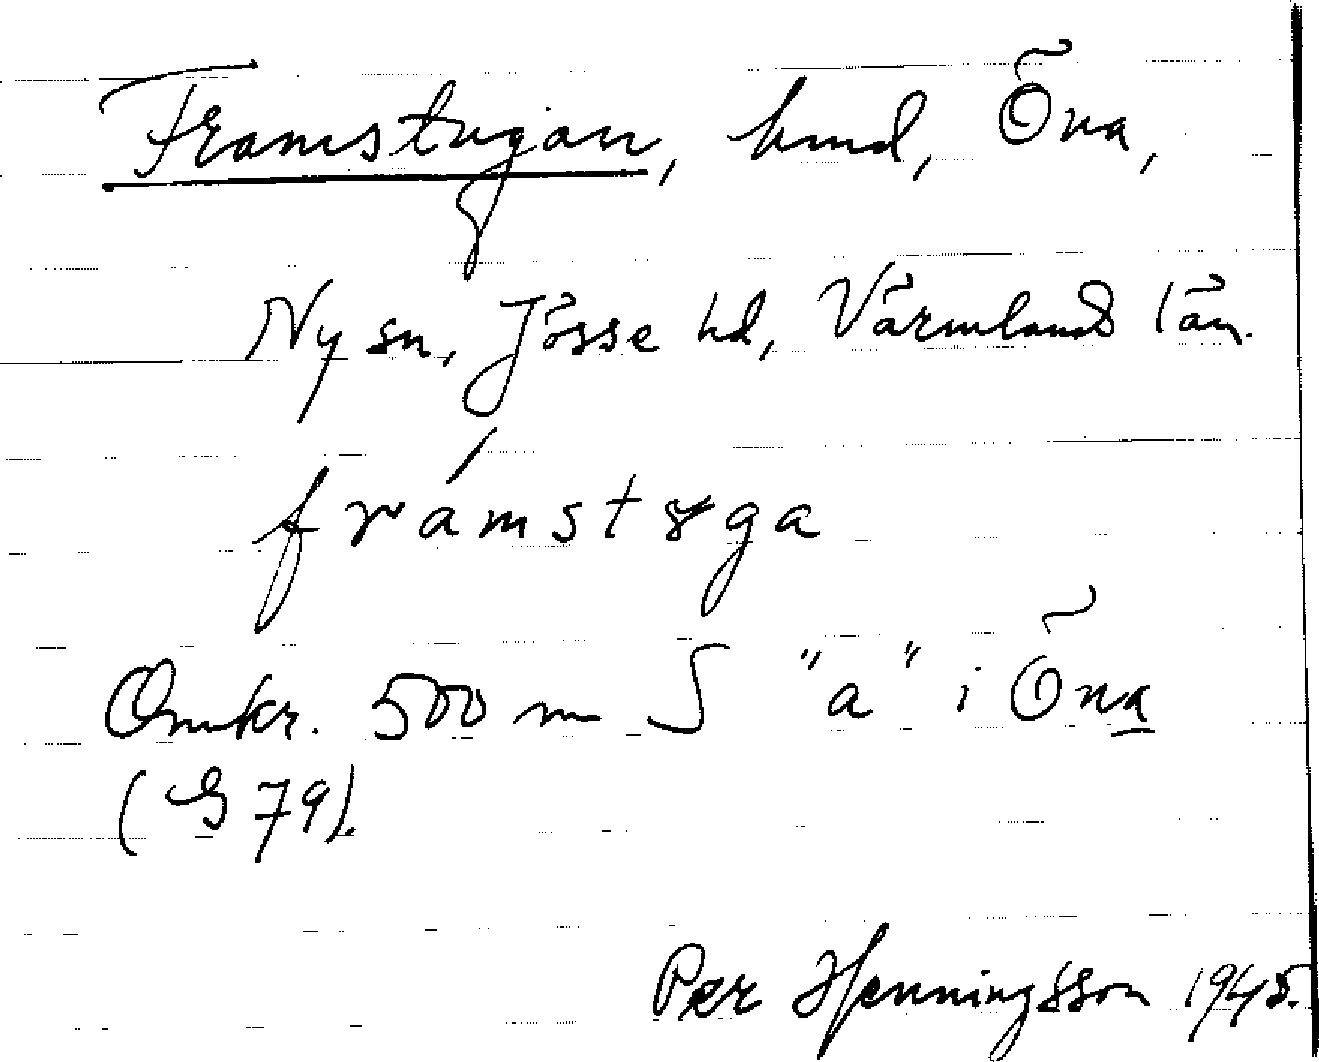 Framstugan, hmd, Öna,
Ny sn, Jösse hd, Värmlands län.
frámstɤga
Omkr. 500 m S "a" i Öna
(G 79).
Per Henningsson 1945.